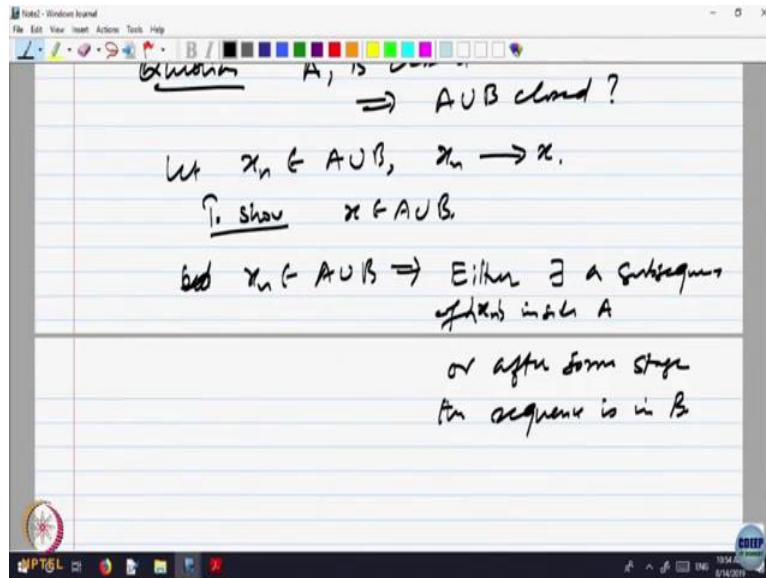 Note2 - Windows Journal
File Edit View Insert Actions Tools Help
Question A, B
⇒ A ∪ B closed ?
Let xₙ ∈ A ∪ B, xₙ → x.
To show x ∈ A ∪ B.
xₙ ∈ A ∪ B ⇒ Either ∃ a subsequence
of {xₙ} inside A
or after some stage
the sequence is in B
NPTEL
CDEEP
ENG
8/14/2019